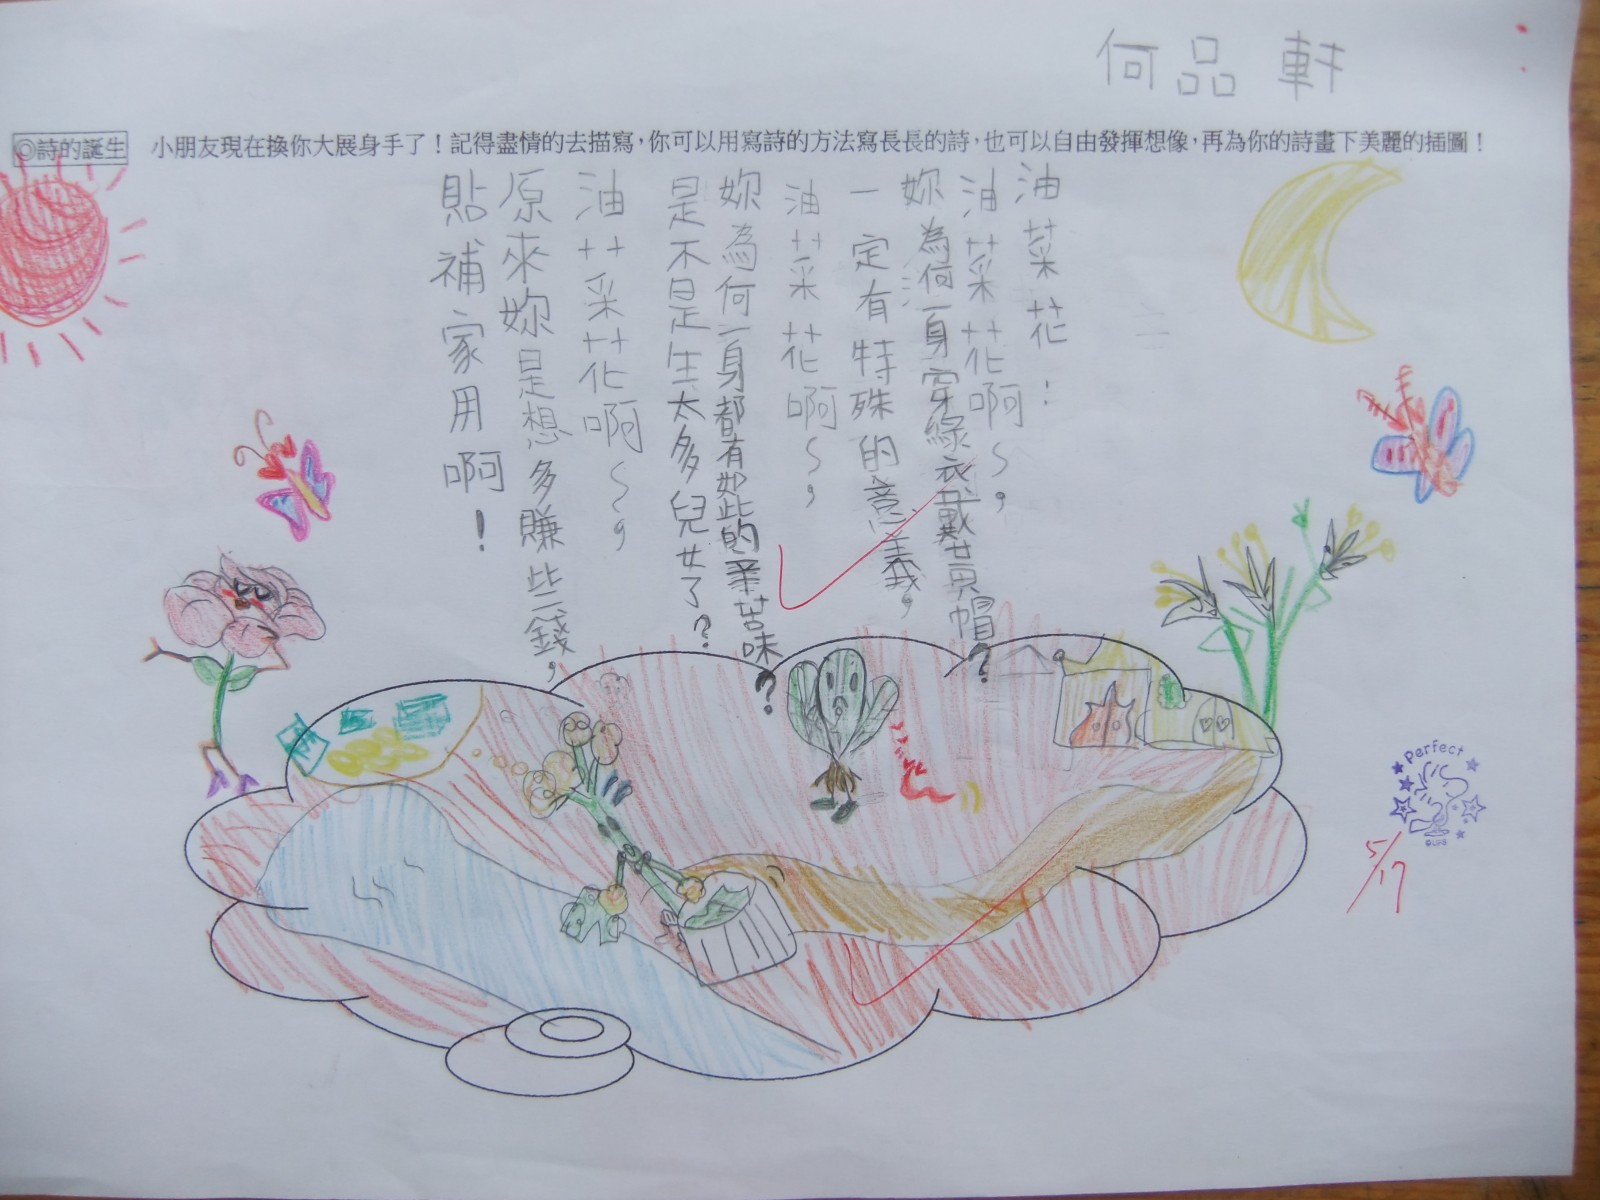 何品軒
◎詩的誕生 小朋友現在換你大展身手了！記得盡情的去描寫，你可以用寫詩的方法寫長長的詩，也可以自由發揮想像，再為你的詩畫下美麗的插圖！
油菜花：
油菜花啊～，
妳為何一身穿綠衣戴黃帽？
一定有特殊的意義，
油菜花啊～，
妳為何一身都有如此的辛苦味？
是不是生太多兒女了？
油菜花啊～，
原來妳是想多賺些錢，
貼補家用啊！
Perfect
5/17